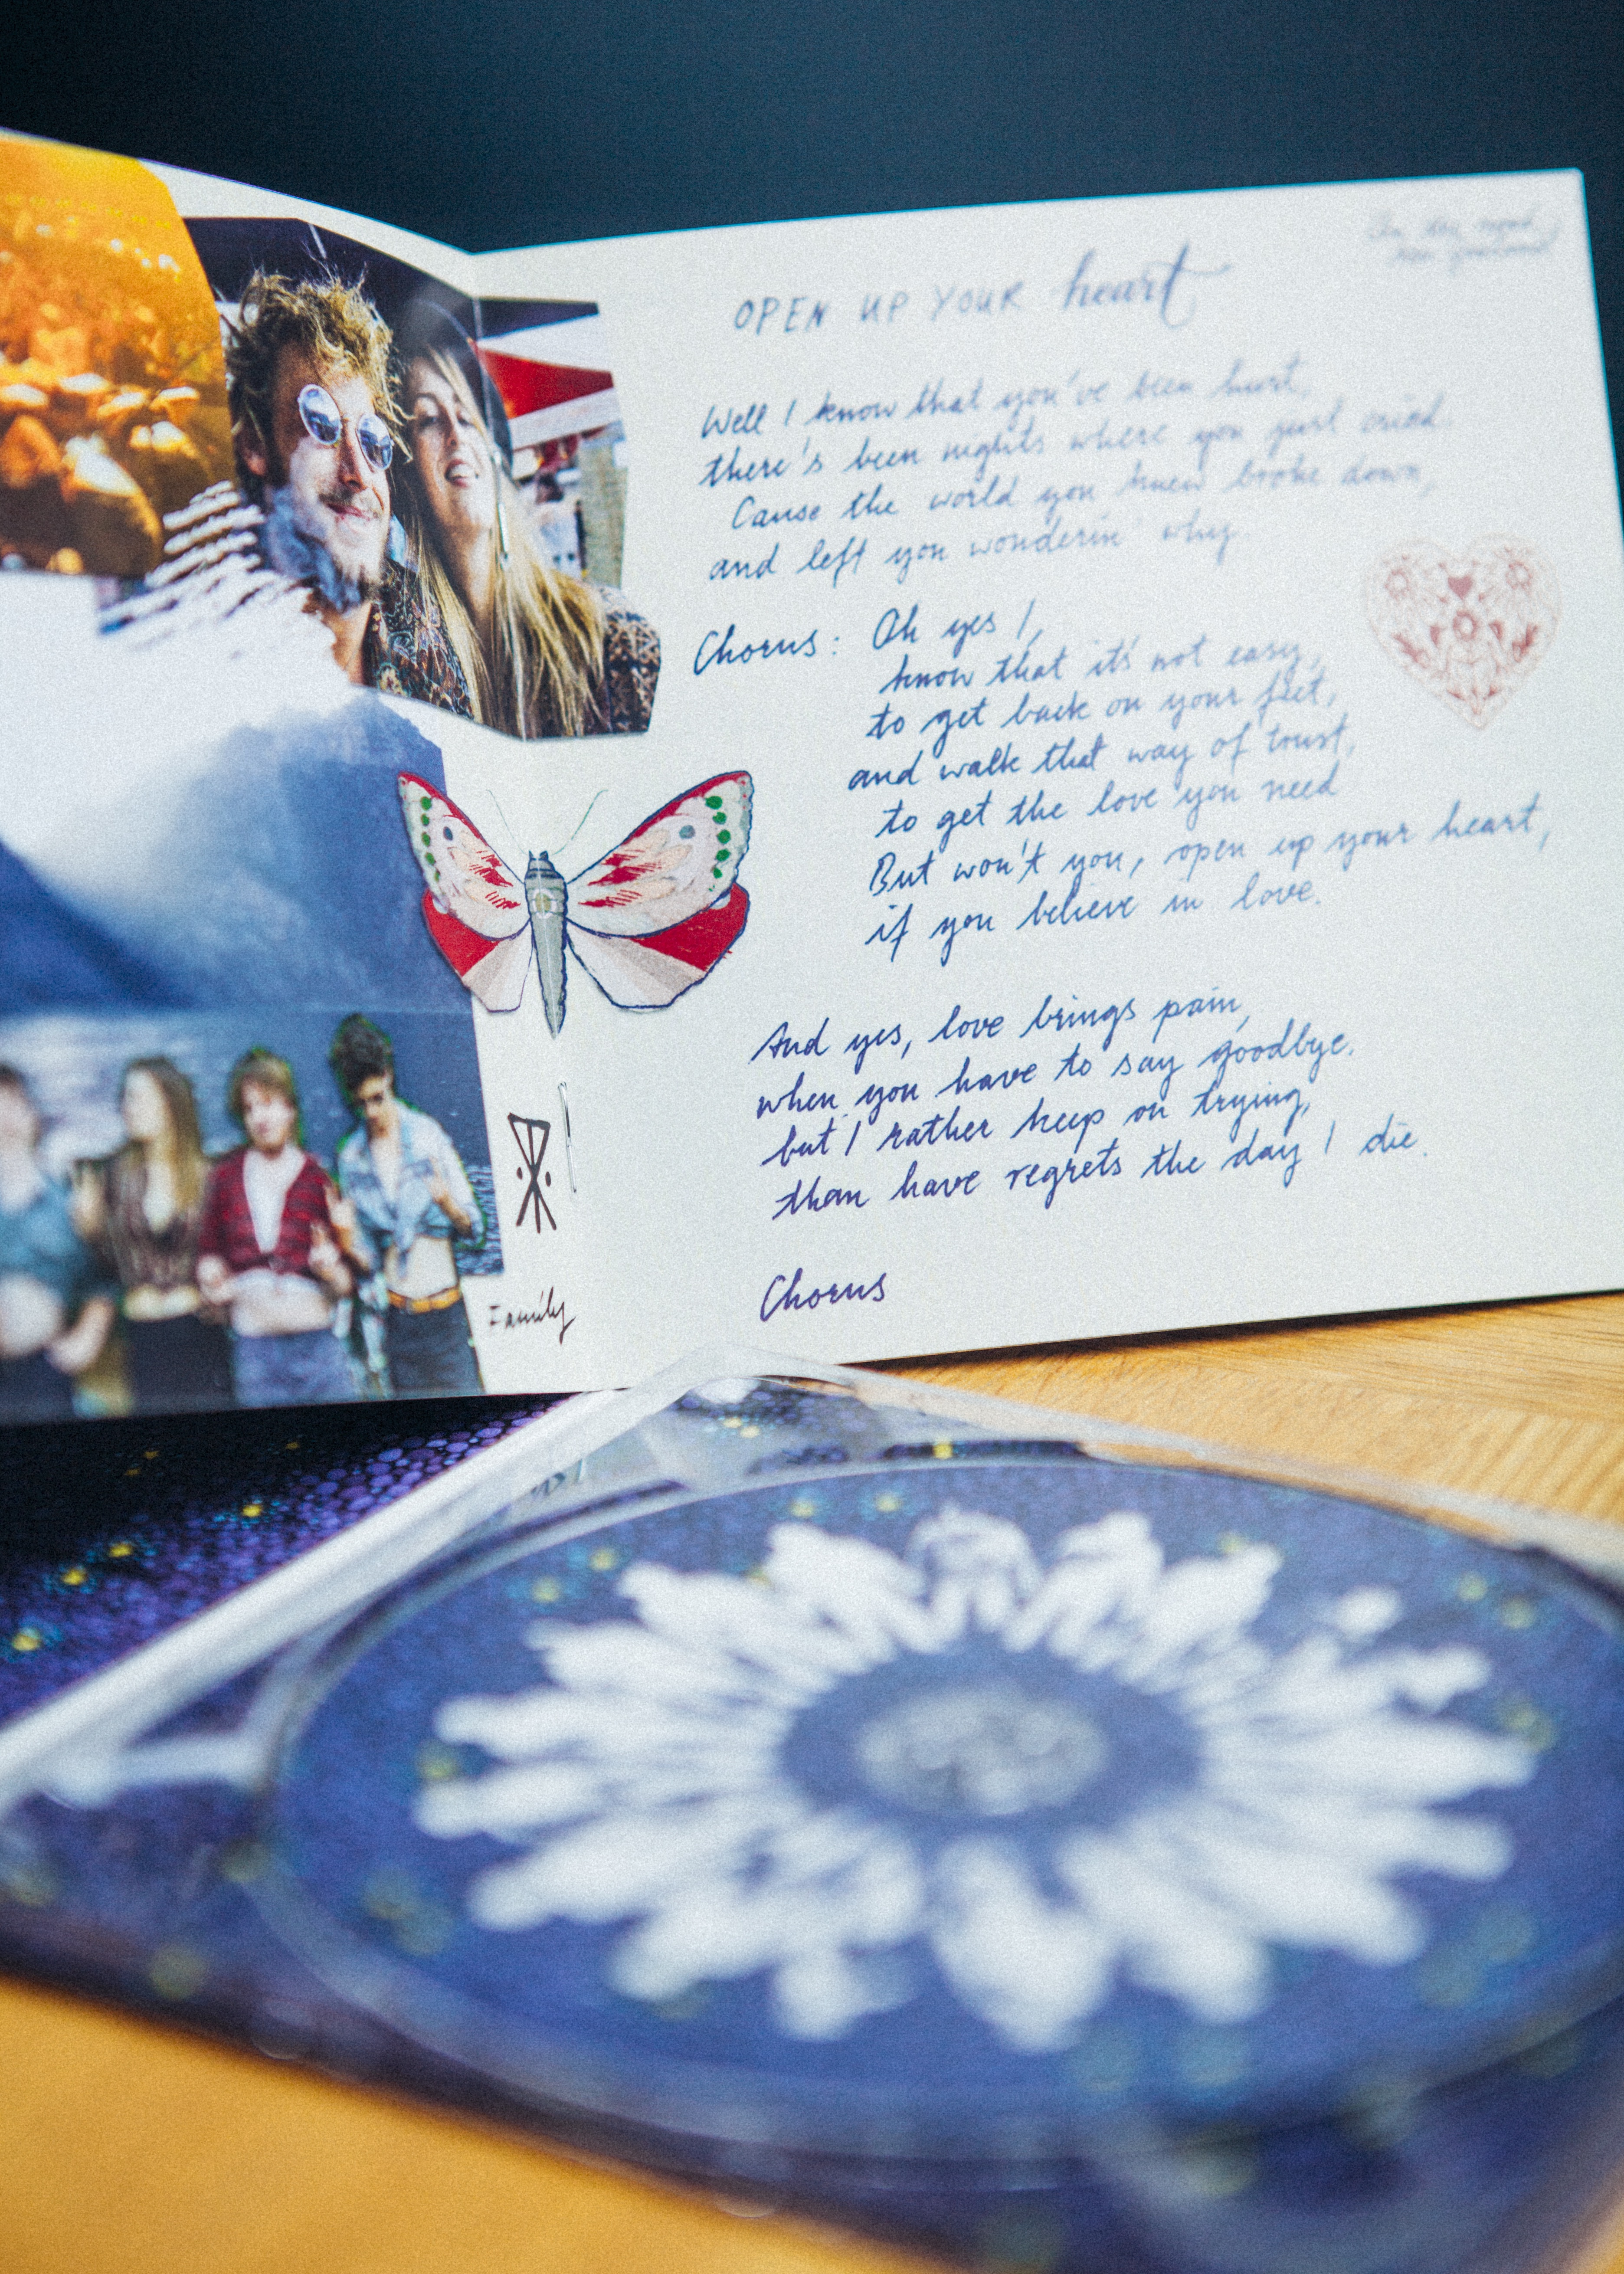 OPEN UP YOUR heart
Well I know that you've been hurt,
there's been nights where you just cried.
Cause the world you knew broke down,
and left you wonderin' why.
Chorus: Oh yes I,
know that it's not easy,
to get back on your feet,
and walk that way of trust,
to get the love you need
But won't you, open up your heart,
if you believe in love.
And yes, love brings pain,
when you have to say goodbye.
but I rather keep on trying,
than have regrets the day I die.
Chorus
Family